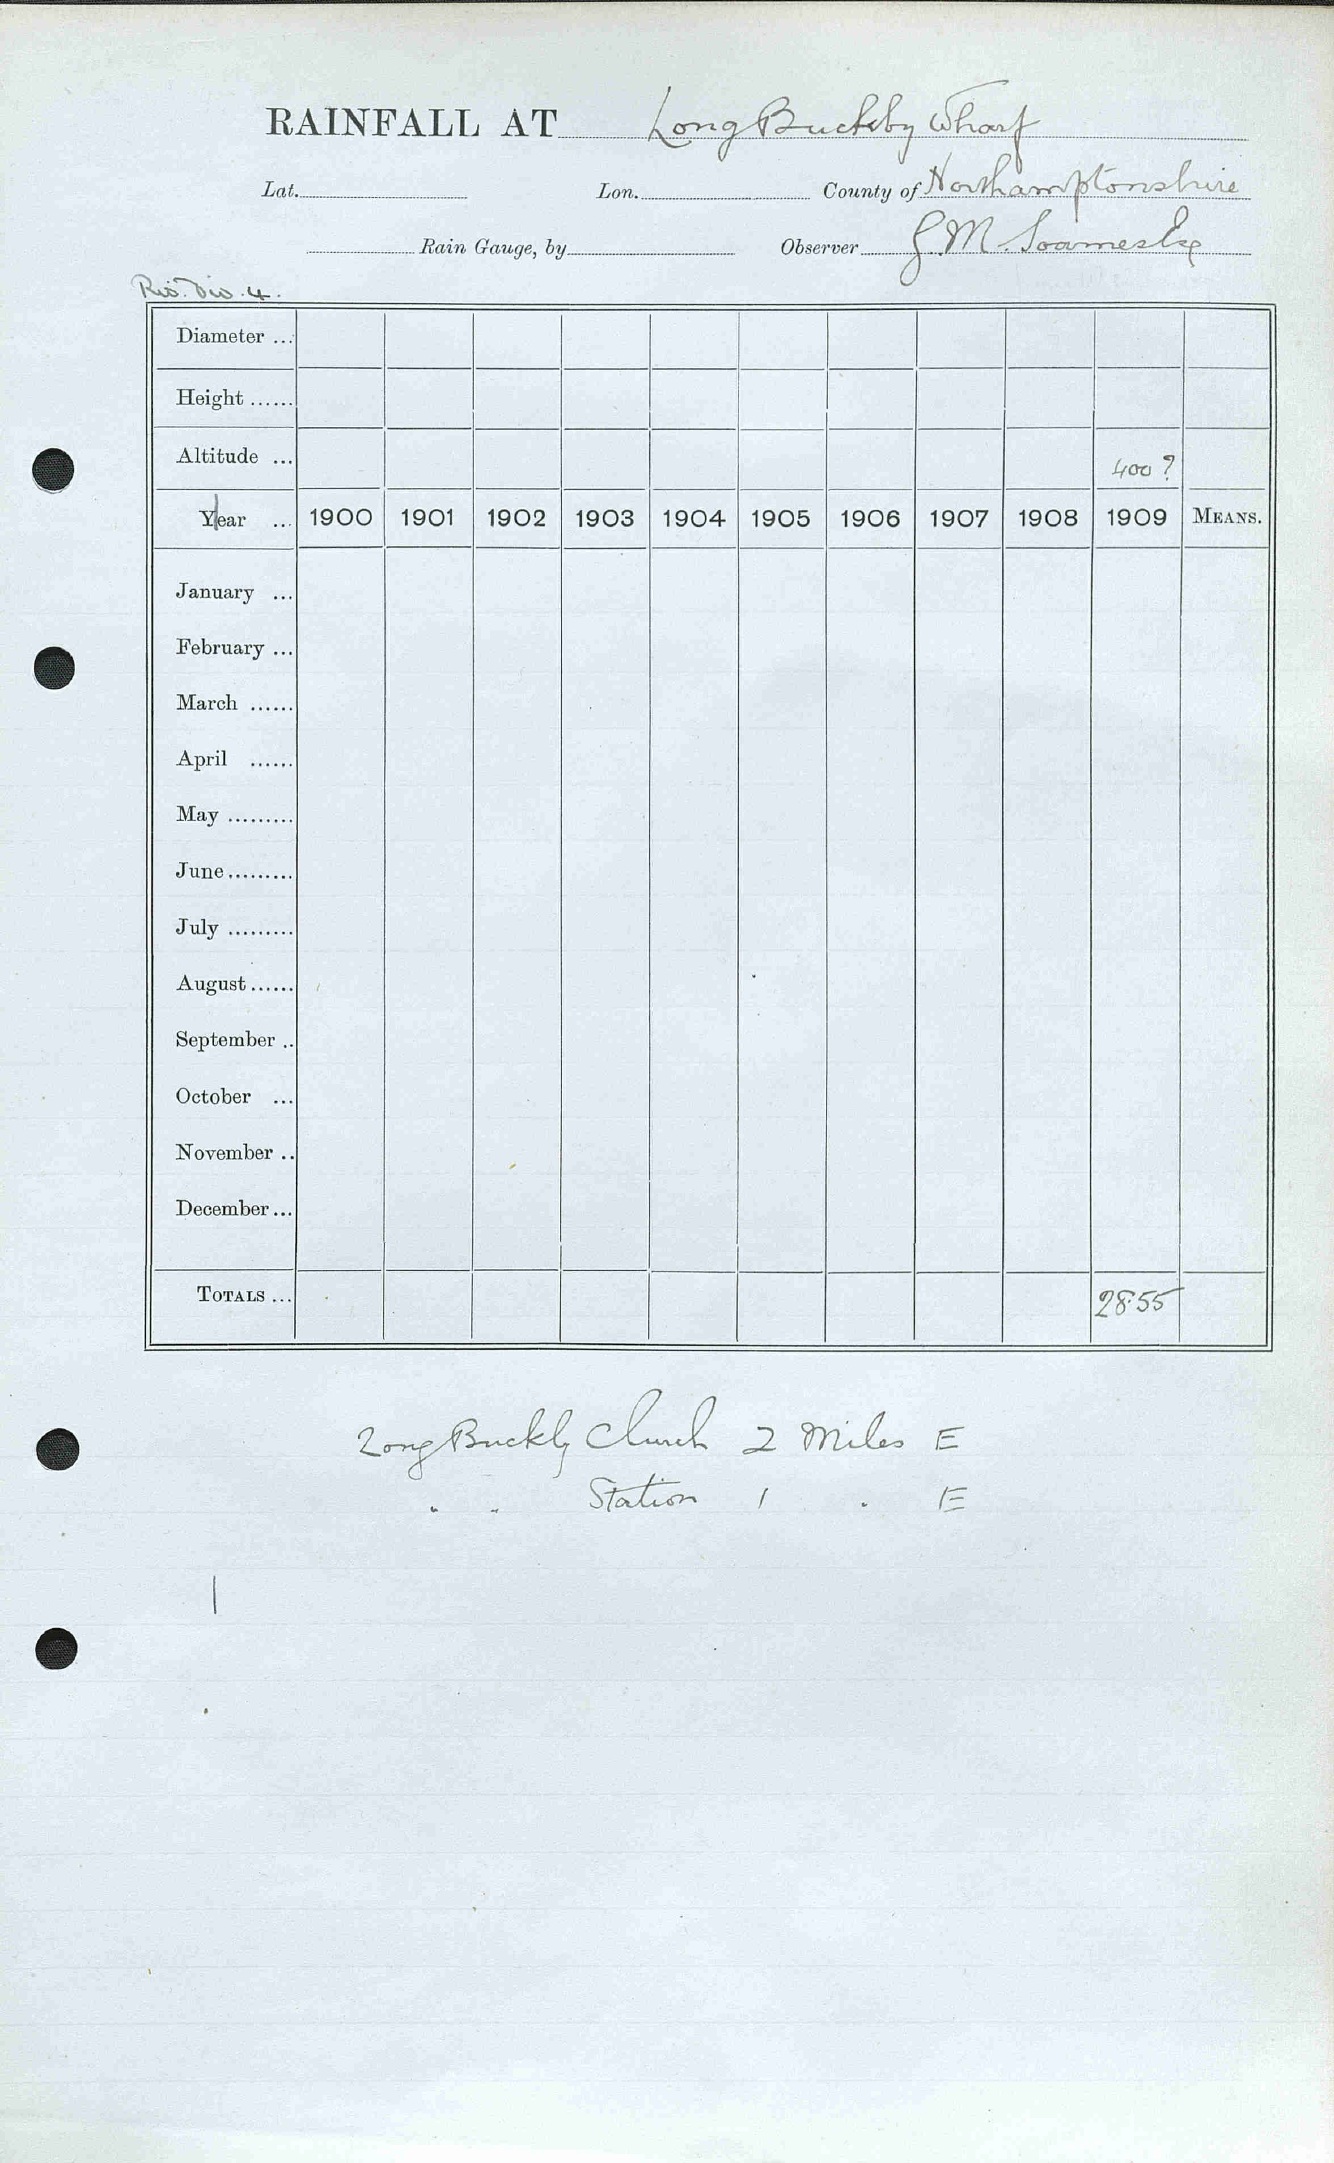 RAINFALL AT Long Buckby Wharf
Lat. Lon. County of Northamptonshire
Rain Gauge, by Observer G.M. Soames Esq
Riv. Div. 4.
Diameter ...
Height ......
Altitude ... 400 ?
Year ... 1900 1901 1902 1903 1904 1905 1906 1907 1908 1909 MEANS.
January ...
February ...
March ......
April ......
May .........
June .........
July .........
August ......
September ..
October ...
November ..
December ...
TOTALS ... 28.55
Long Buckby Church 2 Miles E
" " Station 1 " E